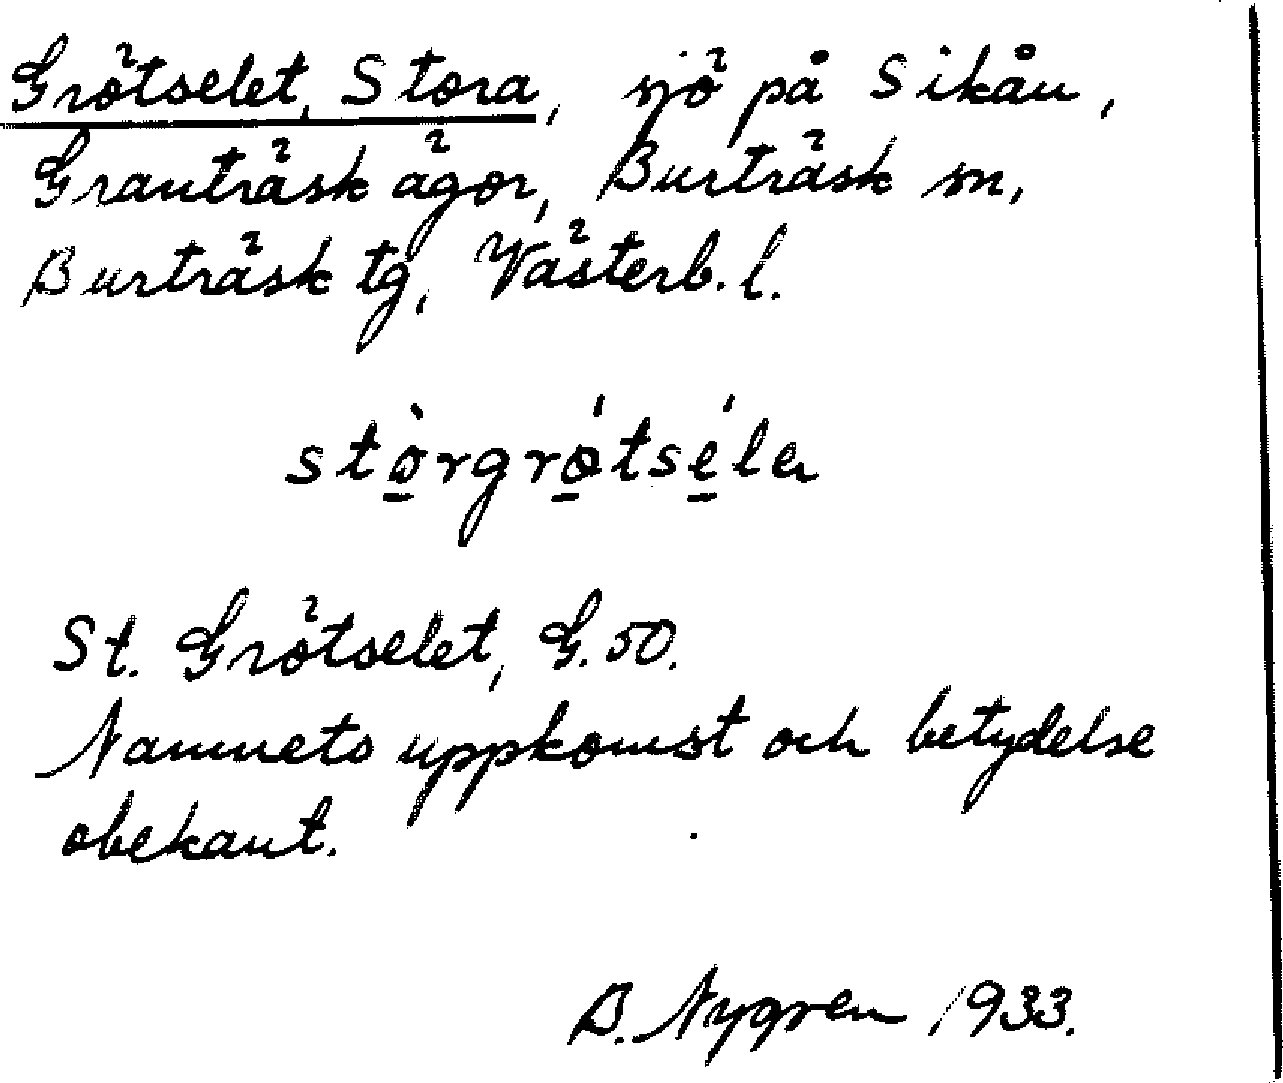 Grötselet, Stora, sjö på Sikån,
Granträsk ägor, Burträsk sn,
Burträsk tg, Västerb. l.
stò̱rgrö̱́tsé̱la
St. Grötselet, G. 50.
Namnets uppkomst och betydelse
obekant.
B. Nygren 1933.